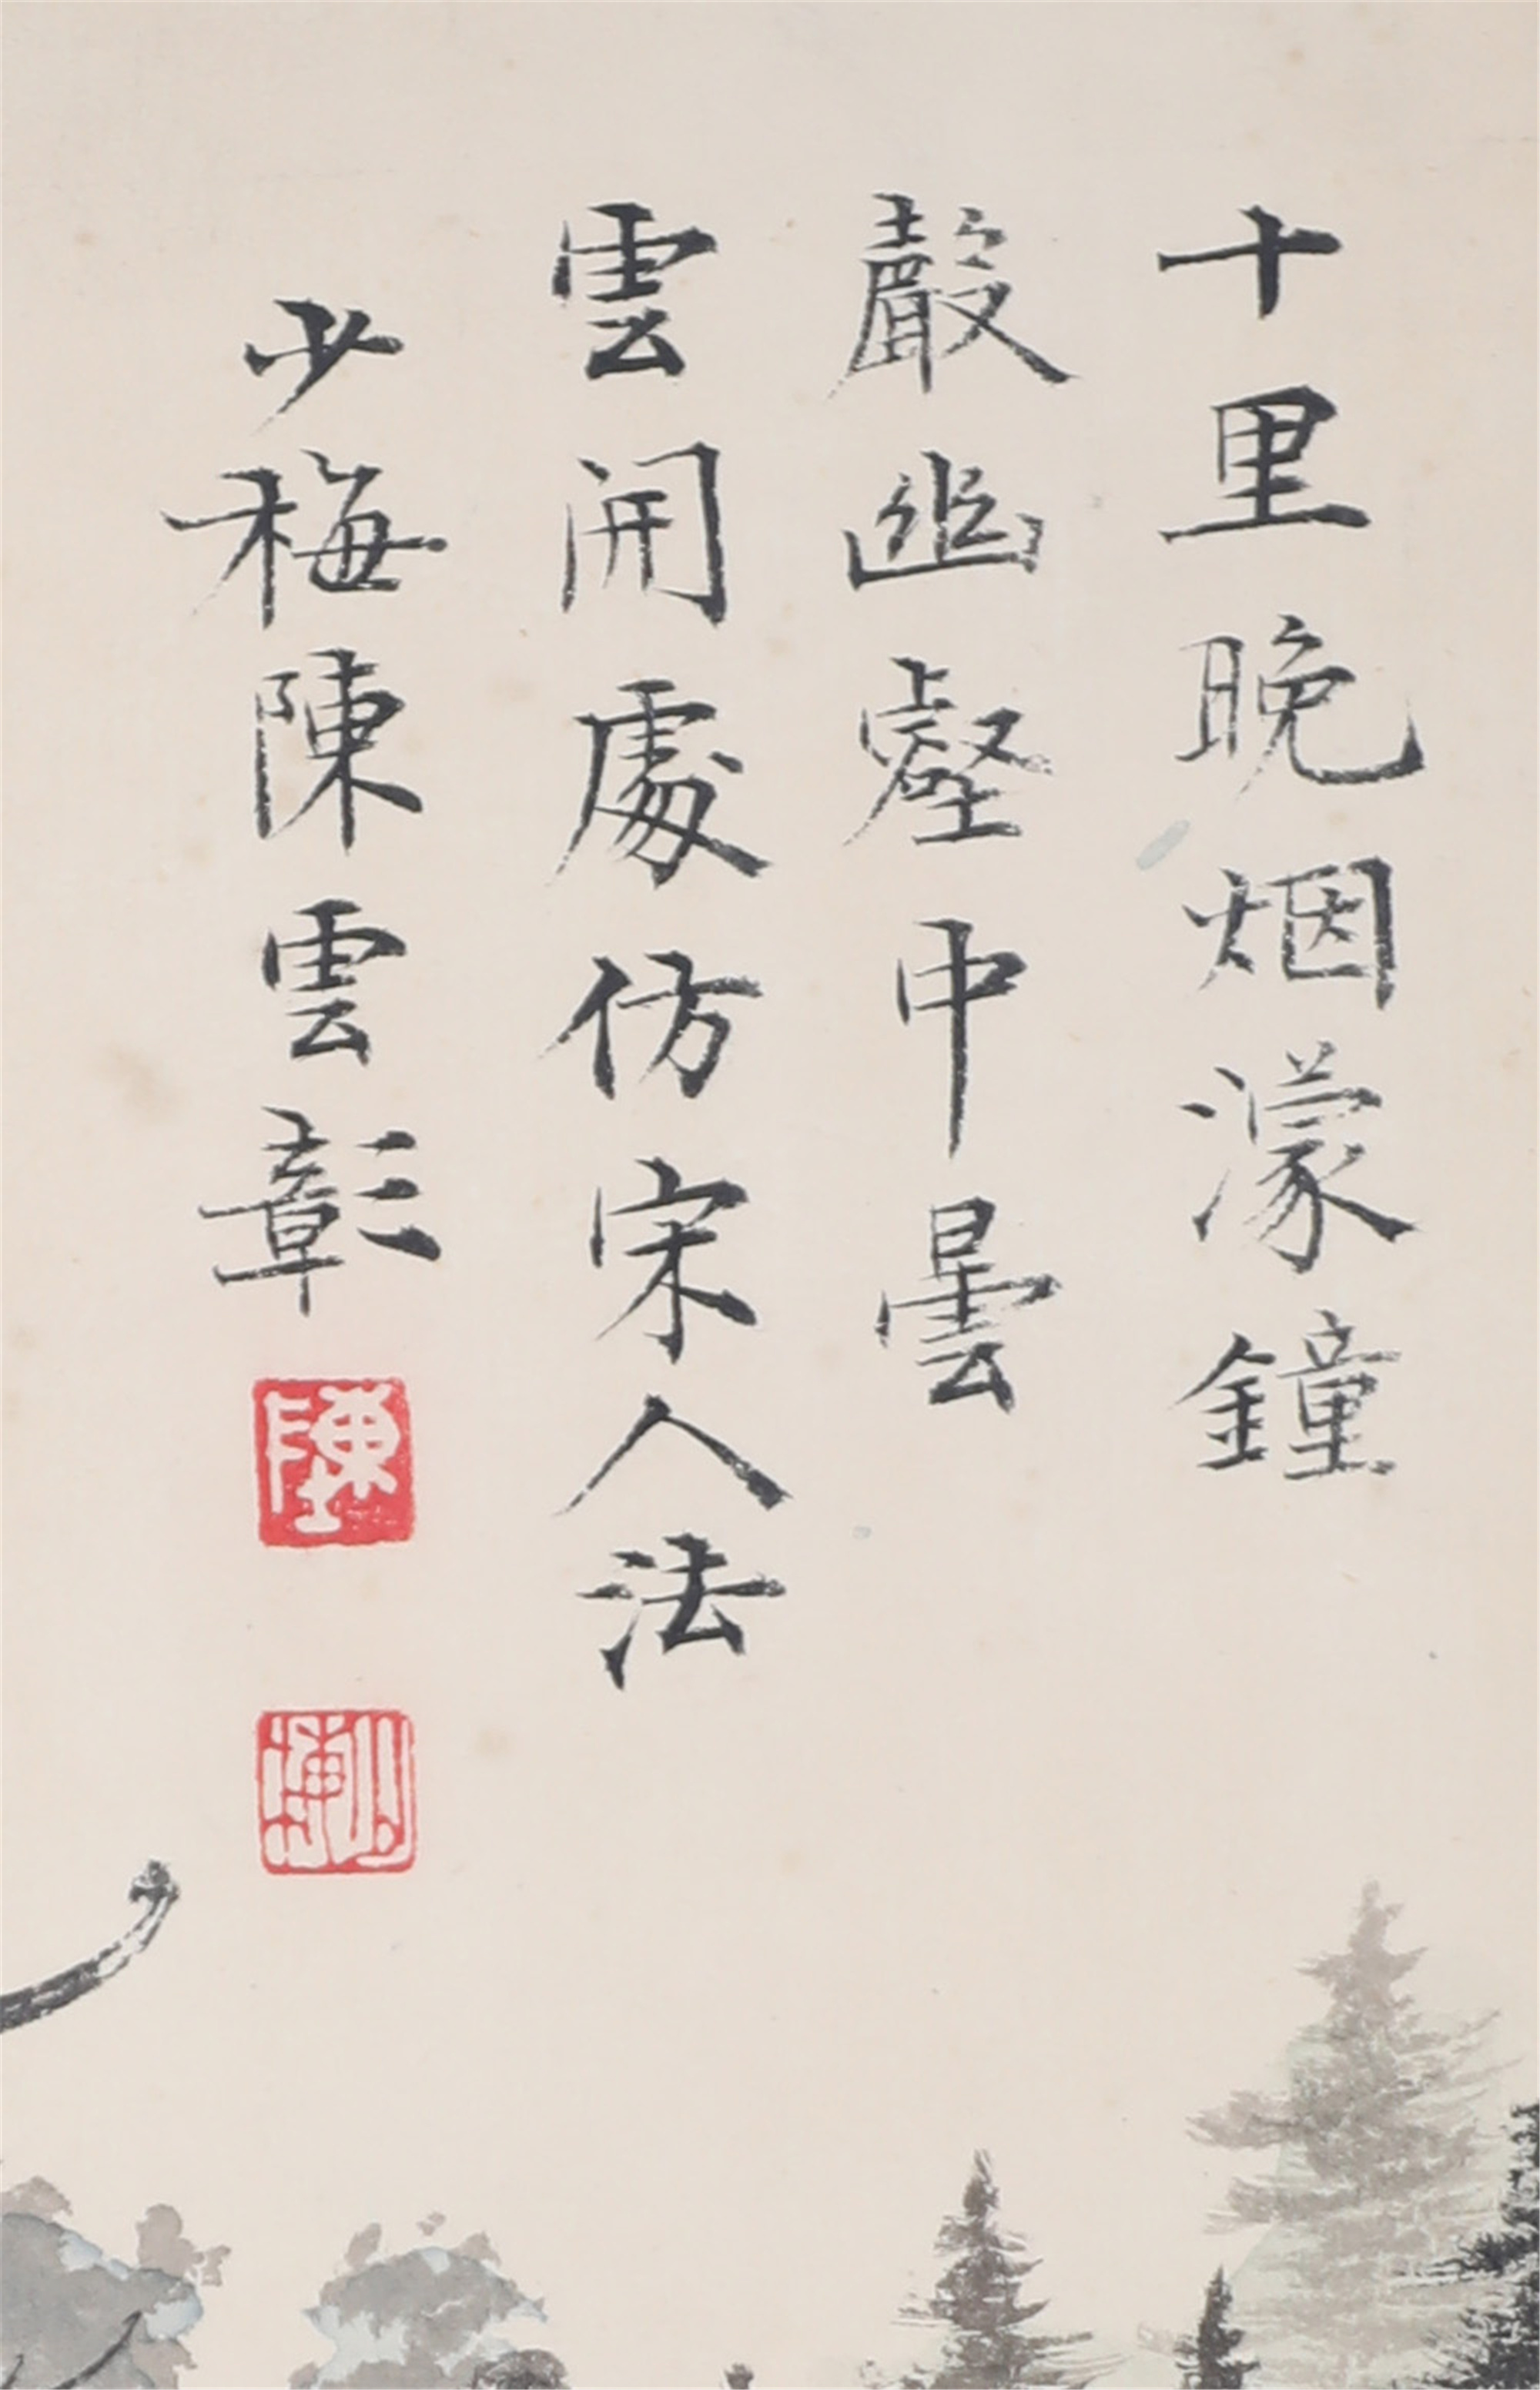 十里晚烟濛鐘
聲幽壑中曇
雲開處仿宋人法
少梅陳雲彰
陳
少梅